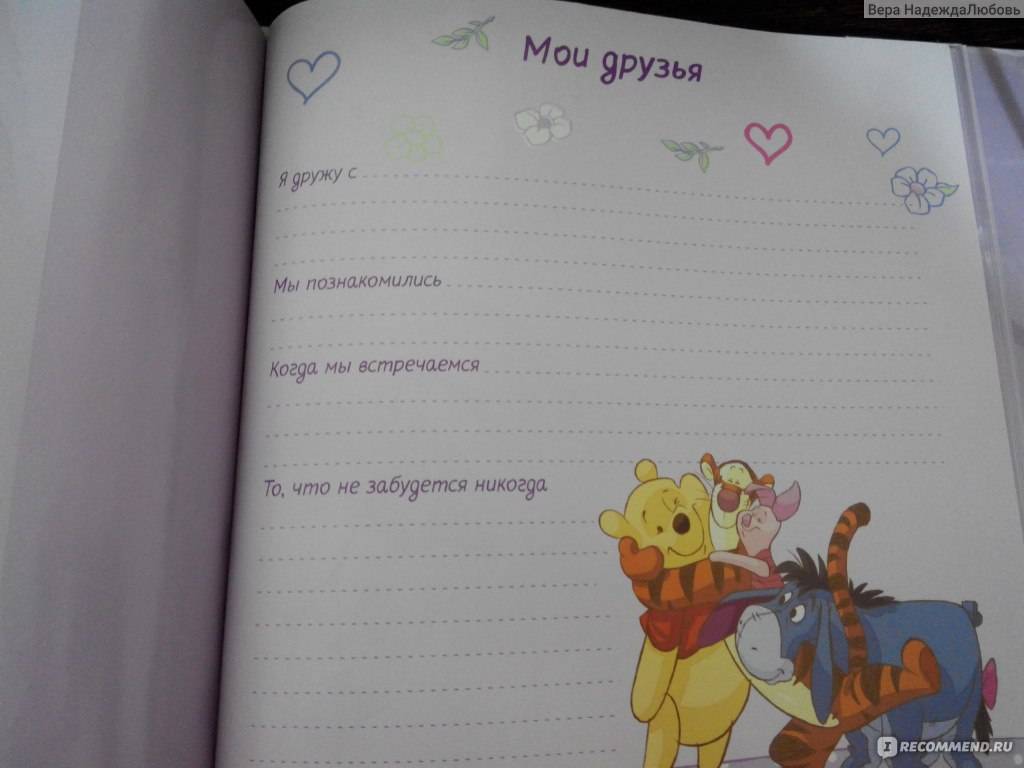 Вера НадеждаЛюбовь
Мои друзья
Я дружу с
Мы познакомились
Когда мы встречаемся
То, что не забудется никогда
IRECOMMEND.RU